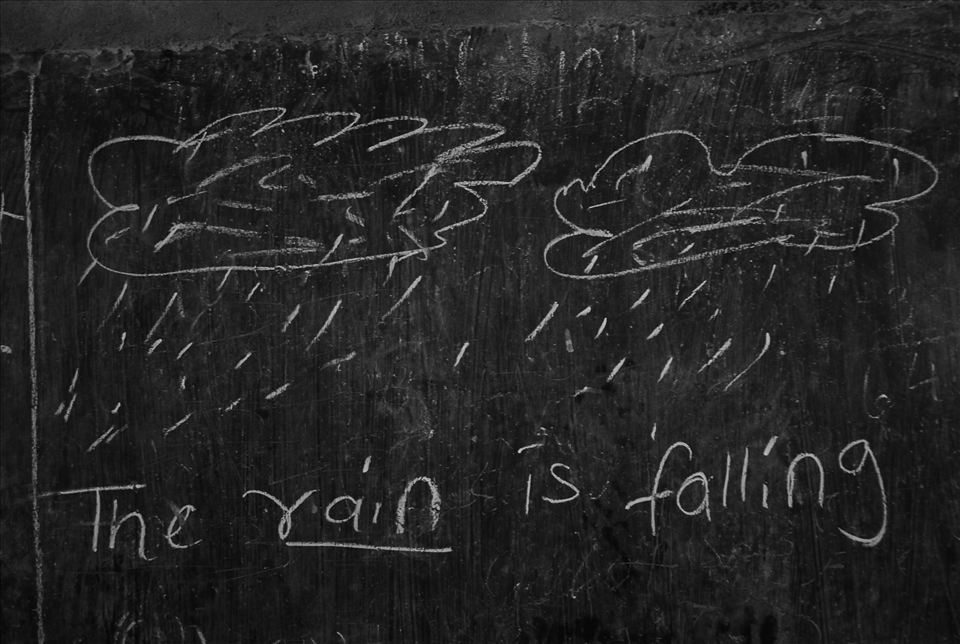 The rain is falling